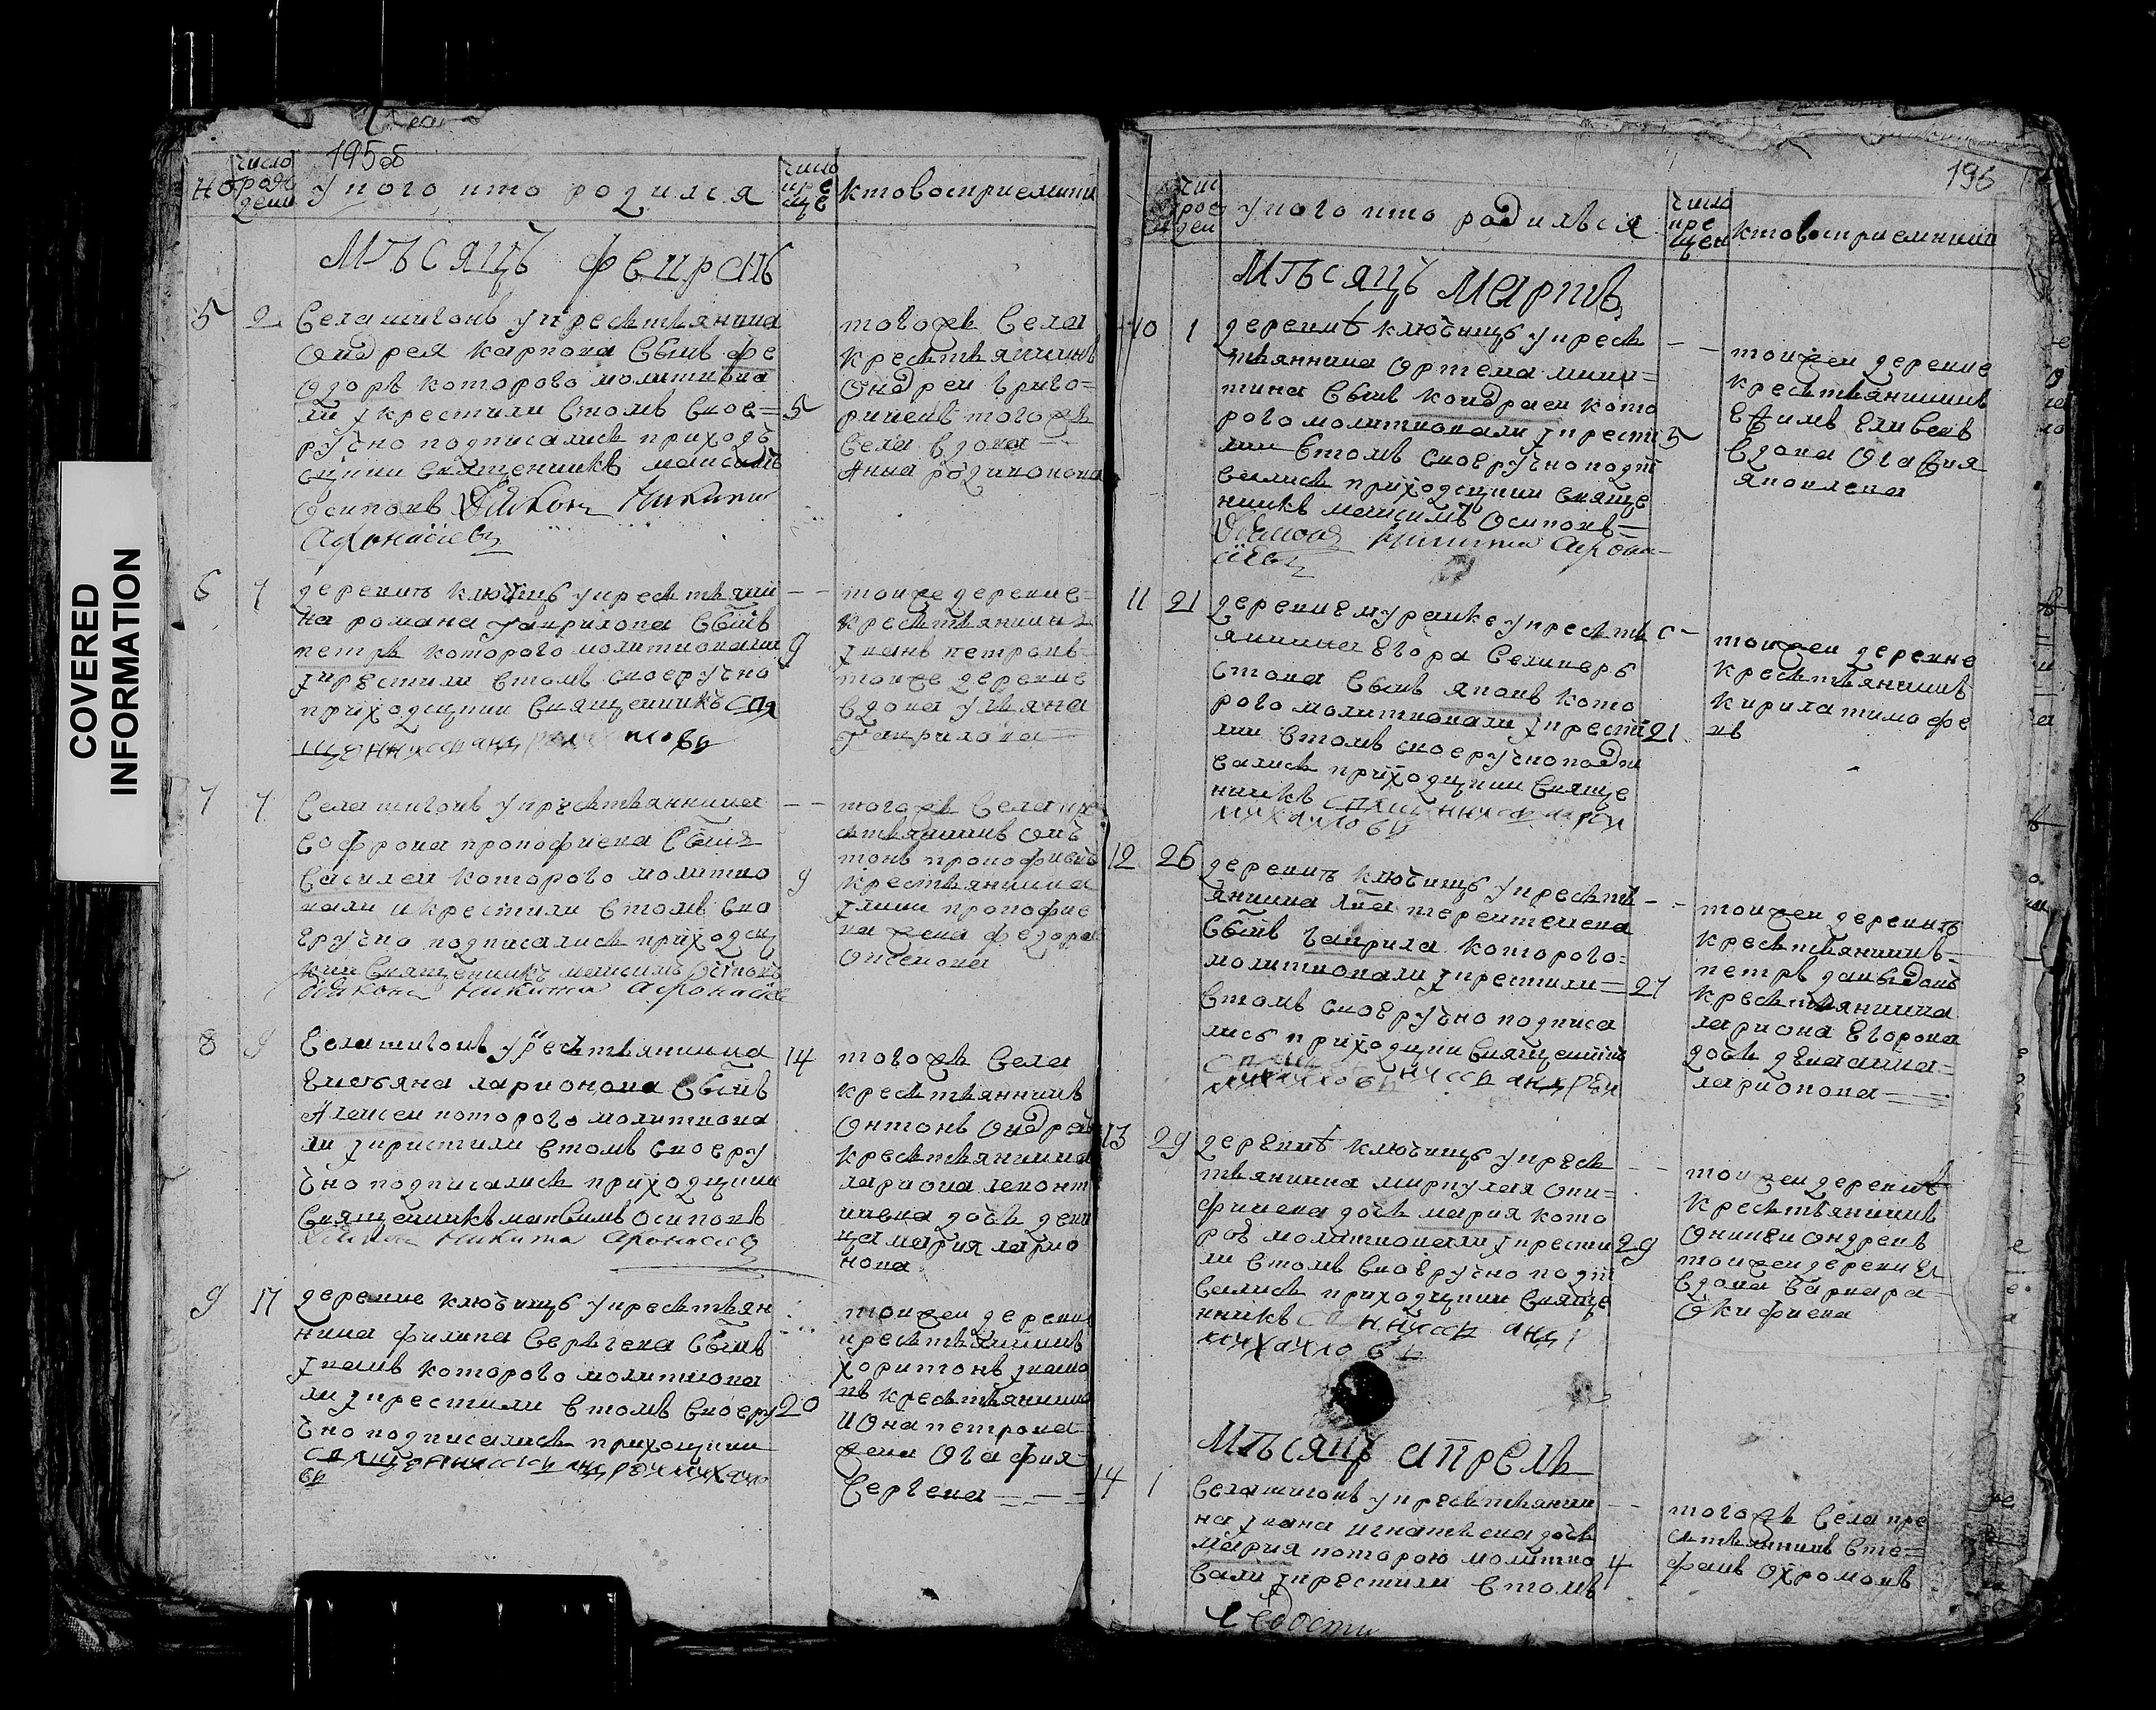 COVERED
INFORMATION
195об
но
число
рож
дени
у кого кто родился
число
кре
ще
кто восприемники
Мѣсяцъ февраль
5 2 Села шигонь у крестьянина
Ондрея Карпова сынъ фе
одоръ которого молитвова
ли ӏ крестили в томъ свое= 5
ручно подписались приходъ
скии священникъ маисимъ
Осиповъ Дьяконъ Никита
Афонасиевъ
тогожъ села
крестьянинъ
Ондреи Григо=
риевъ тогожъ
села вдова
Анна родионова
6 7 деревнѣ ключищь у крестьяни
на романа гаврилова сынъ
петръ которого молитвовали 9
ӏ крестили в томъ своеручно
приходскии священникъ
тоиже деревне=
крестьянинъ
ӏванъ петровъ
тоиже деревне
вдова ульяна
гаврилова
7 7 Села шигонъ у крестьяннина
софрона прокофиева сынъ
василеи которого молитво 9
вали и крестили в томъ сво
еручно подписались приходск
кии священникъ маисимъ Осиповъ
Дьяконъ Никита Афонасиев
тогожъ села кре
стьянинъ Он
тонъ прокофиевъ
крестьянина
ӏлии прокофие
ва жена федора
8 9 Села шигонъ у крестьянина 14
Емельяна ларионова сынъ
Алексеи которого молитвова
ли ӏ кристили в томъ своеру
чно подписались приходскии
священникъ максимъ Осиповъ
Дьяконъ Никита Афонасиев
тогожъ села
крестьяннинъ
Онтонъ Ондрее
крестьяннина
лариона леонт
иева дочь деви
ца мария ларио
нова
9 17 деревне ключищь у крестьян
нина филипа Сергеева сынъ
ӏванъ которого молитвова
ли ӏ крестили в томъ своеру 20
чно подписались приходскии
священникъ андреи михаило
въ
тоижеи деревни
крестьянинъ
харитонъ ӏвано
въ крестьянина
ӏона петрова
жена Огафия
Сергеева
196
чис
рож
ден
у кого кто родилъся
число
кре
щен
кто восприемники
Мѣсяцъ Мартъ
10 1 деревнѣ ключищь у кресть
тьяннина Ортема мики=
тина сынъ кондратеи кото
рого молитвовали ӏ крести 5
ли в томъ своеручно подпи
сались приходскии свяще
нникъ маисимъ Осиповъ
Дьяконъ Никита Афона
сиевъ
тоижеи деревне
крестьянинъ
Ефимъ Елисеевъ
вдова Огафия
яковлева
11 21 деревне мурашке у кресть
янина Егора Селиверь
стова сынъ яковъ кото
рого молитвовали ӏ крести 21
ли в томъ своеручно подпи
сались приходскии свяще
нникъ священникъ андреи
михаиловъ
тоижеи деревне
крестьянинъ
кирила тимофе
въ
12 26 деревнѣ ключищь у кресть
янина
сынъ гаврила которого=
молитвовали ӏ крестили 27
в томъ своеручно подписа
лись приходскии священникъ
священникъ андреи
михаиловъ
тоижеи деревнѣ
крестьянинъ
петръ давыдовъ
крестьянина
лариона Егорова
дочь девица анна
ларионова
13 29 деревнѣ ключищь у кресть
тьянина миркулая
дочь мария кото
роя молитвовали ӏ крести 29
ли в томъ своеручно подпи
сались приходскии свяще
нникъ священникъ андр
михаиловъ
тоижеи деревнѣ
крестьянинъ
Ондреевъ
тоижеи деревни
вдова варвара
Окифиева
Мѣсяцъ апрель
14 1 Села шигонъ у крестьянин
на ӏвана игнатьева дочь
мария которою молитво 4
вали ӏ крестили в томъ
тогожъ села кре
стьянинъ Сте=
фанъ Охромовъ